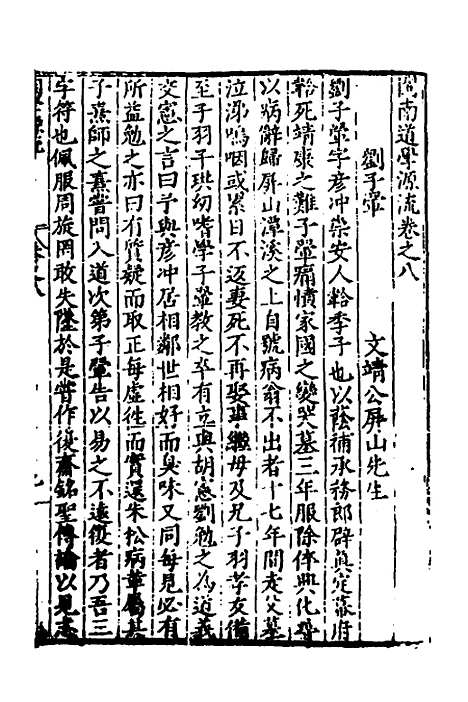 閩南道學源流卷之八
劉子翬
文靖公屏山先生
劉子翬字彥冲崇安人韐季子也以蔭補承務郎辟真定幕府
韐死靖康之難子翬痛憤家國之變哭墓三年服除倅興化尋
以病辭歸屏山潭溪之上自號病翁不出者十七年間走父墓
泣涕嗚咽或累日不返妻死不再娶事繼母及兄子羽孝友備
至子羽子珙幼嗜學子翬教之卒有立與胡憲劉勉之為道義
交憲之言曰予與彥冲居相鄰世相好而臭味又同每見必有
所益勉之亦曰有質疑而取正每虛往而實還朱松病革屬其
子熹師之熹嘗問入道次第子翬告以易之不遠復者乃吾三
字符也佩服周旋罔敢失墜於是嘗作復齋銘聖傳論以見志